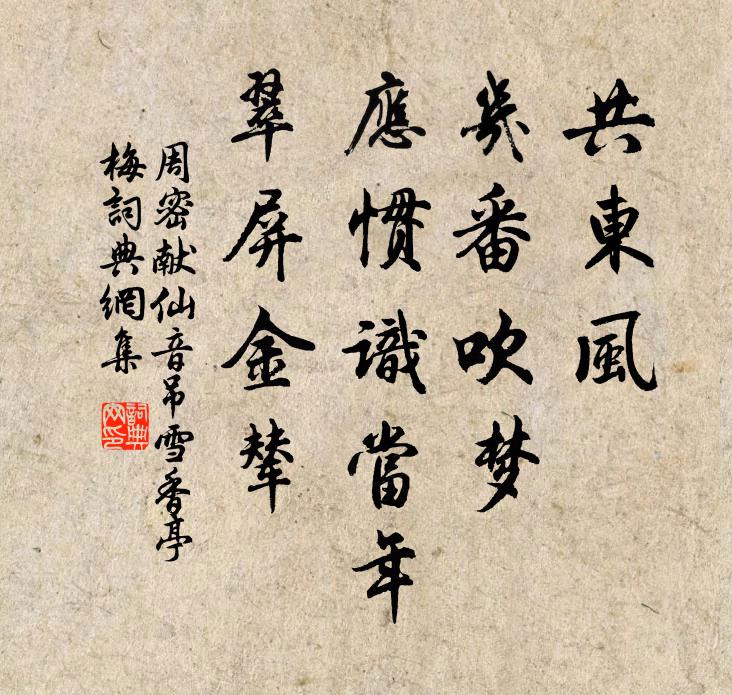 共東風
幾番吹梦
應慣識當年
翠屏金輦
周密献仙音吊雪香亭
梅詞典網集
詞典
网印